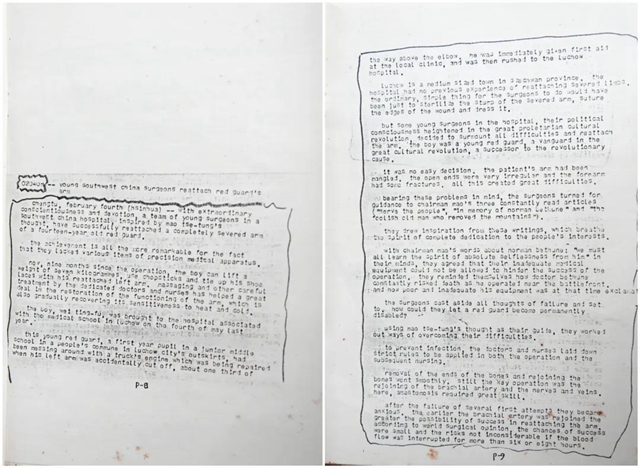 -- young southwest china surgeons reattach red guard's
arm
chengtu, february fourth (hsinhua) -- with extraordinary
consciousness and devotion, a team of young surgeons in a
southwest china hospital, inspired by mao tse-tung's
thought, have successfully reattached a completely severed arm
of a fourteen-year old red guard.
the achievement is all the more remarkable for the fact
that they lacked various items of precision medical apparatus.
now, nine months since the operation, the boy can lift a
weight of seven kilogrammes, use chopsticks and tie up his shoe
laces with his reattached left arm. massaging and other careful
treatment by the dedicated doctors and nurses has helped a great
deal in the restoration of the functioning of the arm, which is
also gradually recovering its sensitiveness to heat and cold.
the boy, was brought to the hospital associated
with the medical school in luchow on the fourth of may last
year.
this young red guard, a first year pupil in a junior middle
school in a people's commune in luchow city's outskirts, had
been messing around with a truck's engine which was being repaired
when his left arm was accidentally cut off, about one third of
P-8
the way above the elbow. he was immediately given first aid
at the local clinic, and was then rushed to the luchow
hospital.
luchow is a medium sized town in szechwan province. the
hospital had no previous experience of reattaching severed limbs.
the ordinary, simple thing for the surgeons to do would have
been just to sterilize the stump of the severed arm, suture
the edges of the wound and dress it.
but some young surgeons in the hospital, their political
consciousness heightened in the great proletarian cultural
revolution, decided to surmount all difficulties and reattach
the arm. the boy was a young red guard, a vanguard in the
great cultural revolution, a successor to the revolutionary
cause.
it was no easy decision. the patient's arm had been
mangled. the open ends were very irregular and the forearm
had some fractures. all this created great difficulties.
bearing these problems in mind, the surgeons turned for
guidance to chairman mao's three constantly read articles
("serve the people", "in memory of norman bethune" and "the
foolish old man who removed the mountains").
they drew inspiration from these writings, which breathe
the spirit of complete dedication to the people's interests.
with chairman mao's words about norman bethune: "we must
all learn the spirit of absolute selflessness from him" in
their minds, they agreed that their inadequate medical
equipment could not be allowed to hinder the success of the
operation. they reminded themselves how doctor bethune
constantly risked death as he operated near the battlefront,
and how poor and inadequate his equipment was at that time
the surgeons cast aside all thoughts of failure and set
to. how could they let a red guard become permanently
disabled?
using mao tse-tung's thought as their guide, they worked
out ways of overcoming their difficulties.
to prevent infection, the doctors and nurses laid down
strict rules to be applied in both the operation and the
subsequent nursing.
removal of the ends of the bones and rejoining the
bones went smoothly. still the key operation was the
rejoining of the brachial artery and the nerves and veins.
here, anastomosis required great skill.
after the failure of several first attempts they became
anxious. the earlier the brachial artery was rejoined the
greater the possibility of success in reattaching the arm.
according to world surgical opinion, the chances of success
were small and the risks not inconsiderable if the blood
flow was interrupted for more than six or eight hours.
P-9